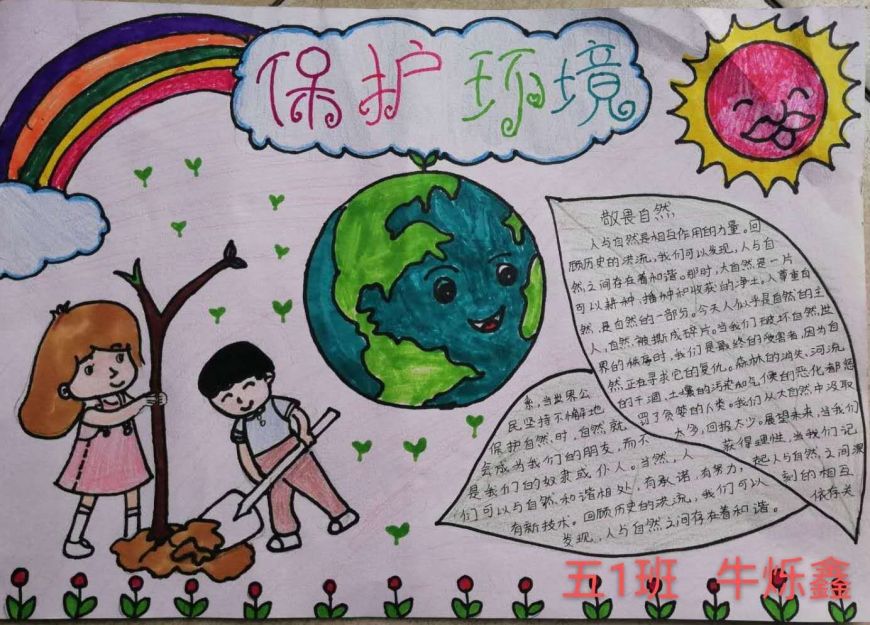 保护环境
敬畏自然
人与自然是相互作用的力量。回
顾历史的洪流,我们可以发现,人与自
然之间存在着和谐。那时,大自然是一片
可以耕种,播种和收获的净土。人尊重自
然,是自然的一部分。今天人似乎是自然的主
人,自然被撕成碎片。当我们破坏自然,世
界的秩序时,我们是最终的受害者,因为自
然正在寻求它的复仇。森林的消失,河流
的干涸,土壤的污染和气候的恶化都惩
罚了贪婪的人类。我们从大自然中汲取
太多,回报太少。展望未来,当我们
获得理性,当我们记
起人与自然之间深
刻的相互
依存关
系,当世界公
民坚持不懈地
保护自然时,自然就
会成为我们的朋友,而不
是我们的奴隶或仆人。当然,人
们可以与自然和谐相处,有承诺,有努力,
有新技术。回顾历史的洪流,我们可以
发现,人与自然之间存在着和谐。
五1班 牛烁鑫